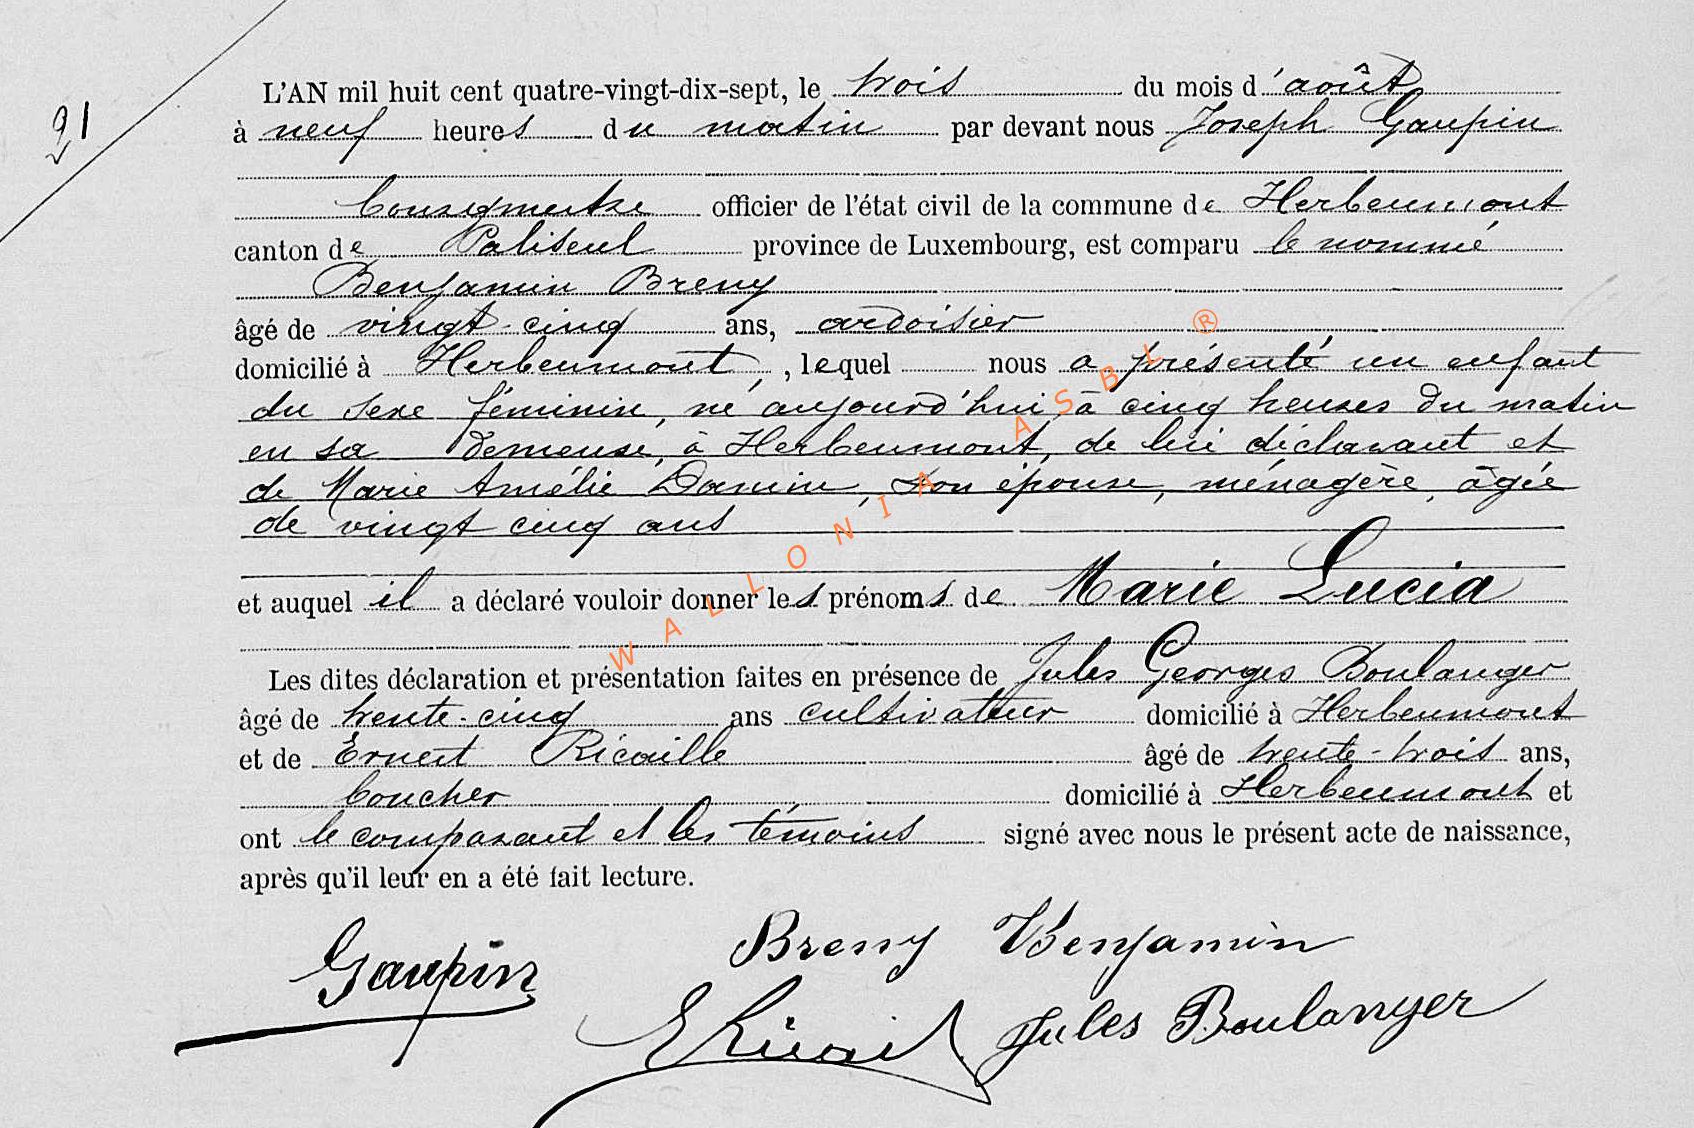 21
L'AN mil huit cent quatre-vingt-dix-sept, le trois du mois d'août
à neuf heures du matin par devant nous Joseph Gaupin
Bourgmestre officier de l'état civil de la commune de Herbeumont
canton de Paliseul province de Luxembourg, est comparu le nommé
Benjamin Breny
âgé de vingt-cinq ans, ardoisier
domicilié à Herbeumont, , lequel nous a présenté un enfant
du sexe féminin, né aujourd'hui, à cinq heures du matin
en sa demeure, à Herbeumont, de lui déclarant et
de Marie Amélie Damin, son épouse, ménagère, âgée
de vingt cinq ans
et auquel il a déclaré vouloir donner les prénoms de Marie Lucia
Les dites déclaration et présentation faites en présence de Jules Georges Boulanger
âgé de trente-cinq ans cultivateur domicilié à Herbeumont
et de Ernest Ricaille âgé de trente-trois ans,
boucher domicilié à Herbeumont et
ont le comparant et les témoins signé avec nous le présent acte de naissance,
après qu'il leur en a été fait lecture.
Gaupin Breny Benjamin
Jules Boulanger
WALLONIA ASBL ®